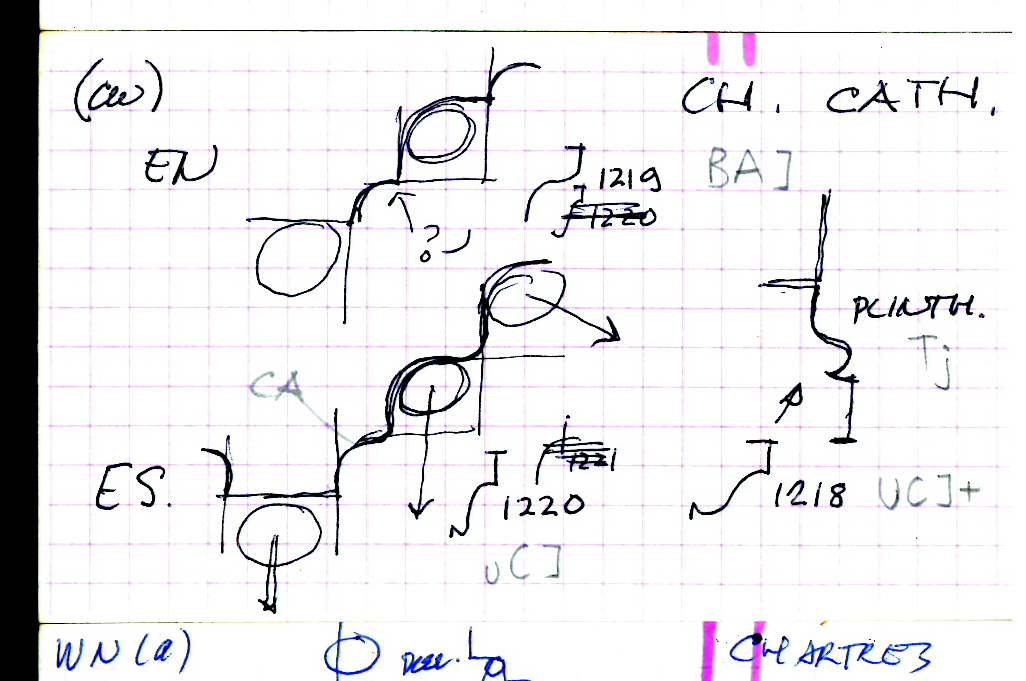 (aw)
CH. CATH.
EN
BA]
1219
1220
?
PLINTH.
Tj
CA
ES.
1221
1220
1218 UC]+
UC]
WN (a)
CHARTRES